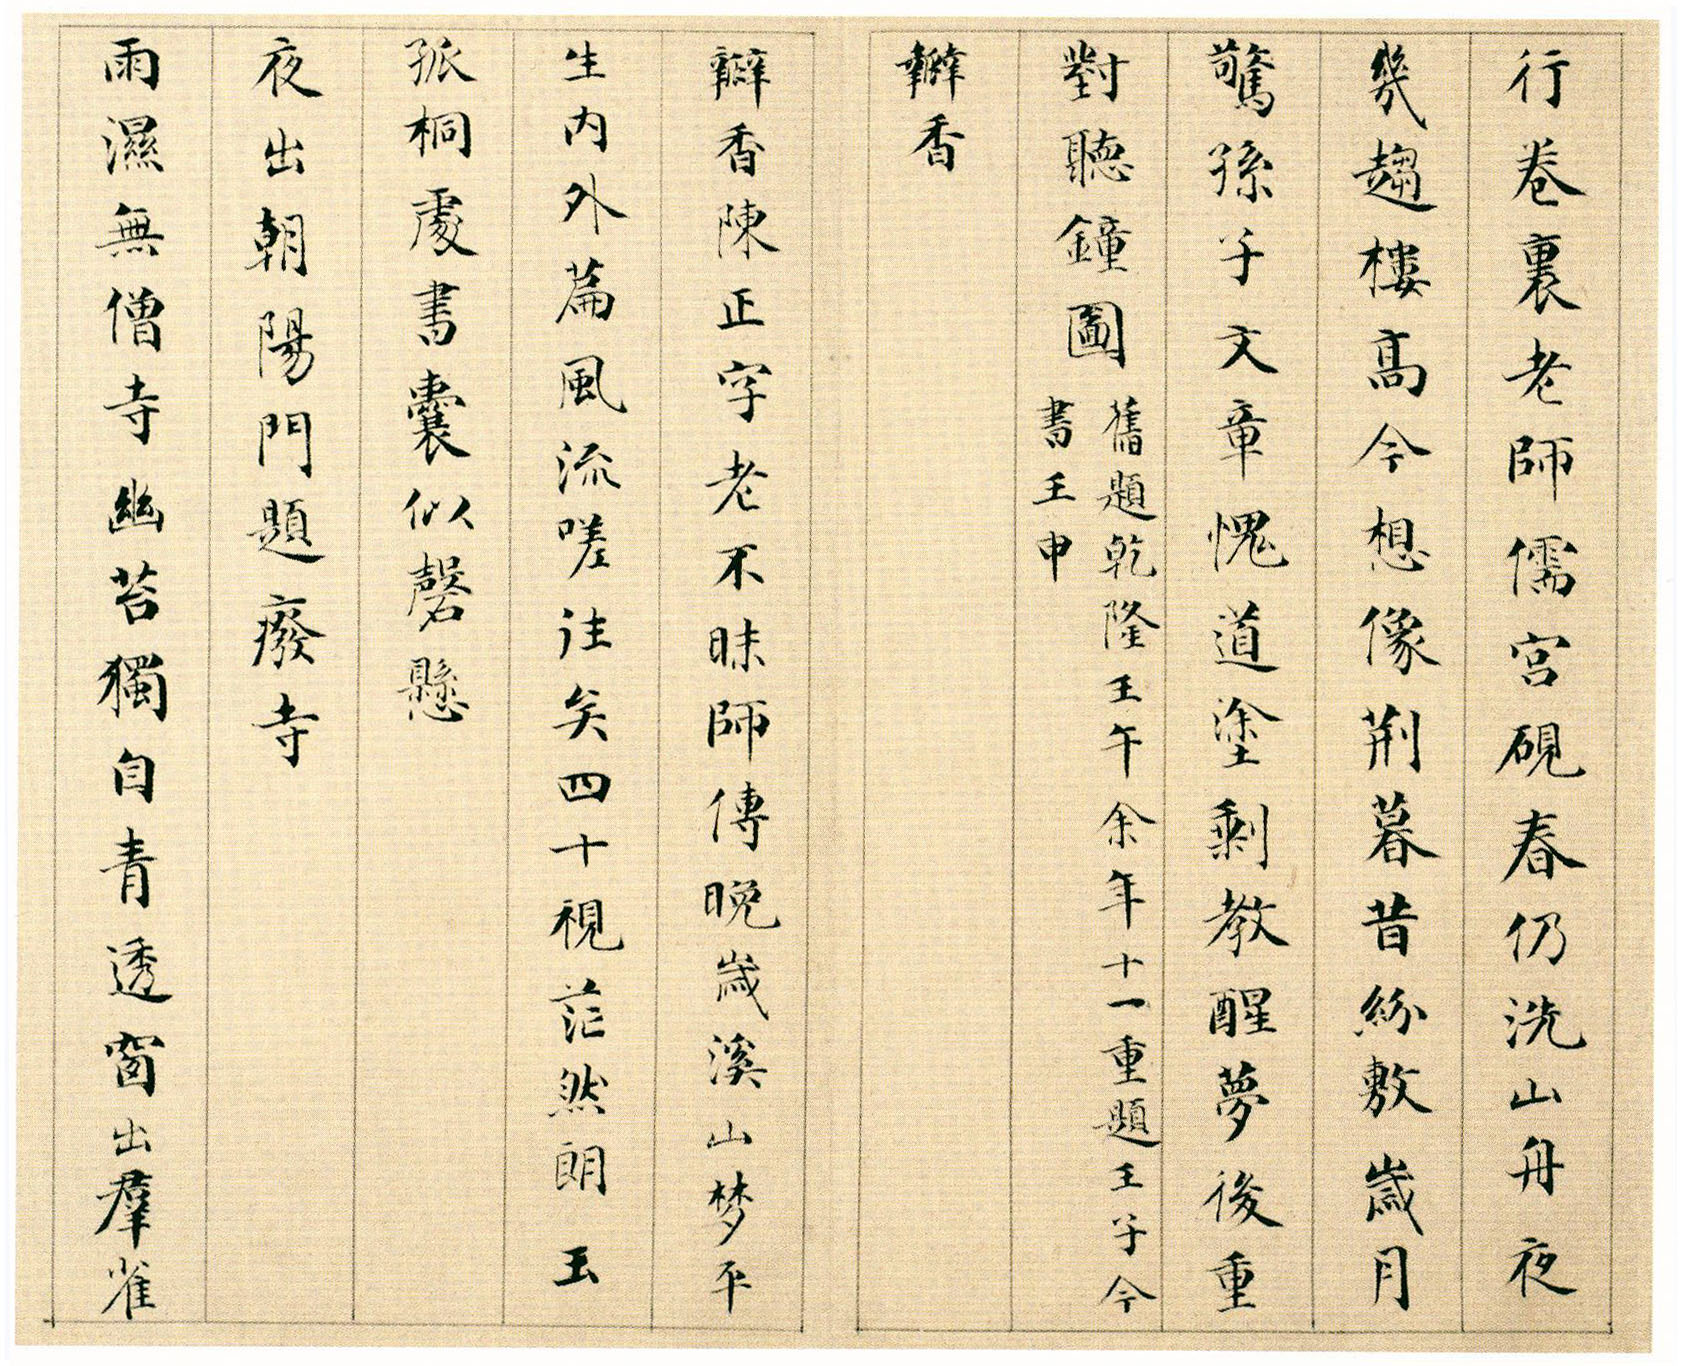 行卷裏老師儒宮硯春仍洗山舟夜
幾趨樓高今想像荆暮昔紛敷歲月
驚孫子文章愧道塗剩教醒夢後重
對聽鐘圖
舊題乾隆壬午余年十一重題壬子今
書壬申
瓣香
瓣香陳正字老不昧師傳晚歲溪山梦平
生内外萹風流嗟往矣四十視茫然朗玉
孤桐處書囊似磬懸
夜出朝陽門題廢寺
雨濕無僧寺幽苔獨自青透窗出羣雀